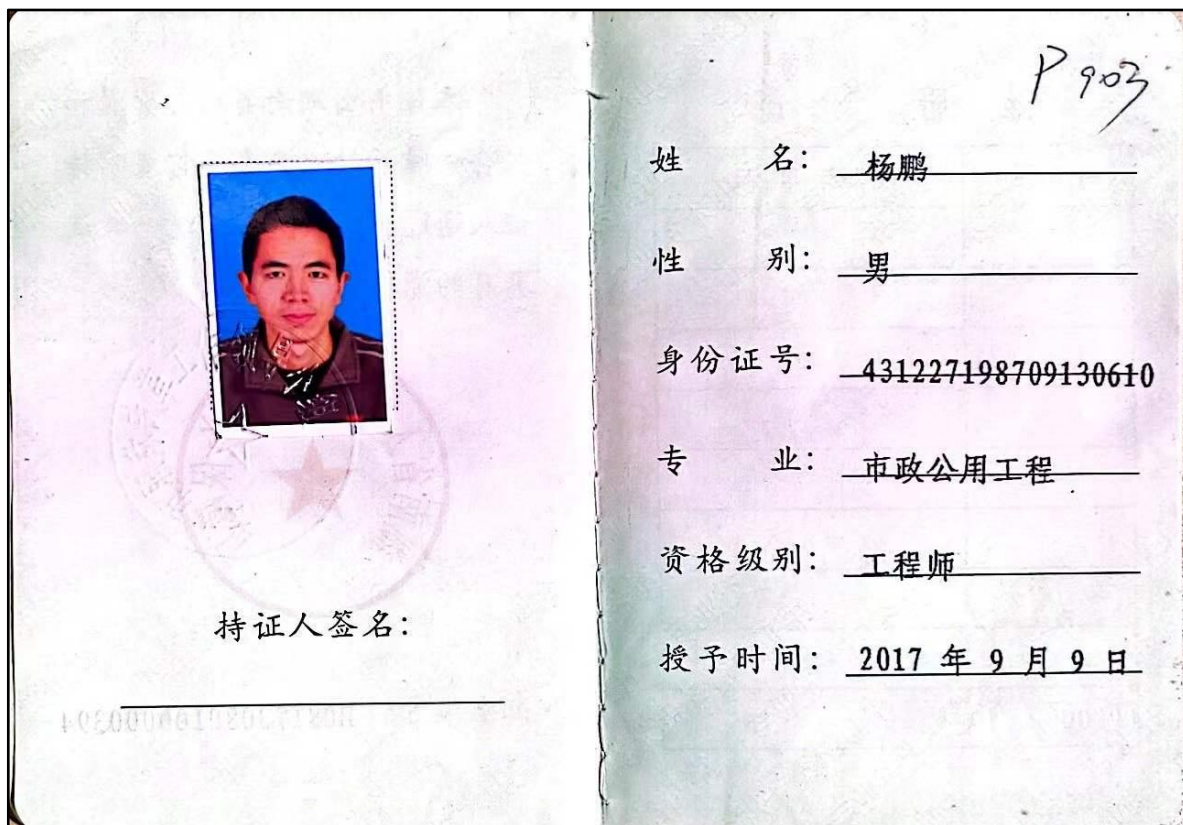 持证人签名:
P903
姓 名: 杨鹏
性 别: 男
身份证号: 431227198709130610
专 业: 市政公用工程
资格级别: 工程师
授予时间: 2017 年 9 月 9 日